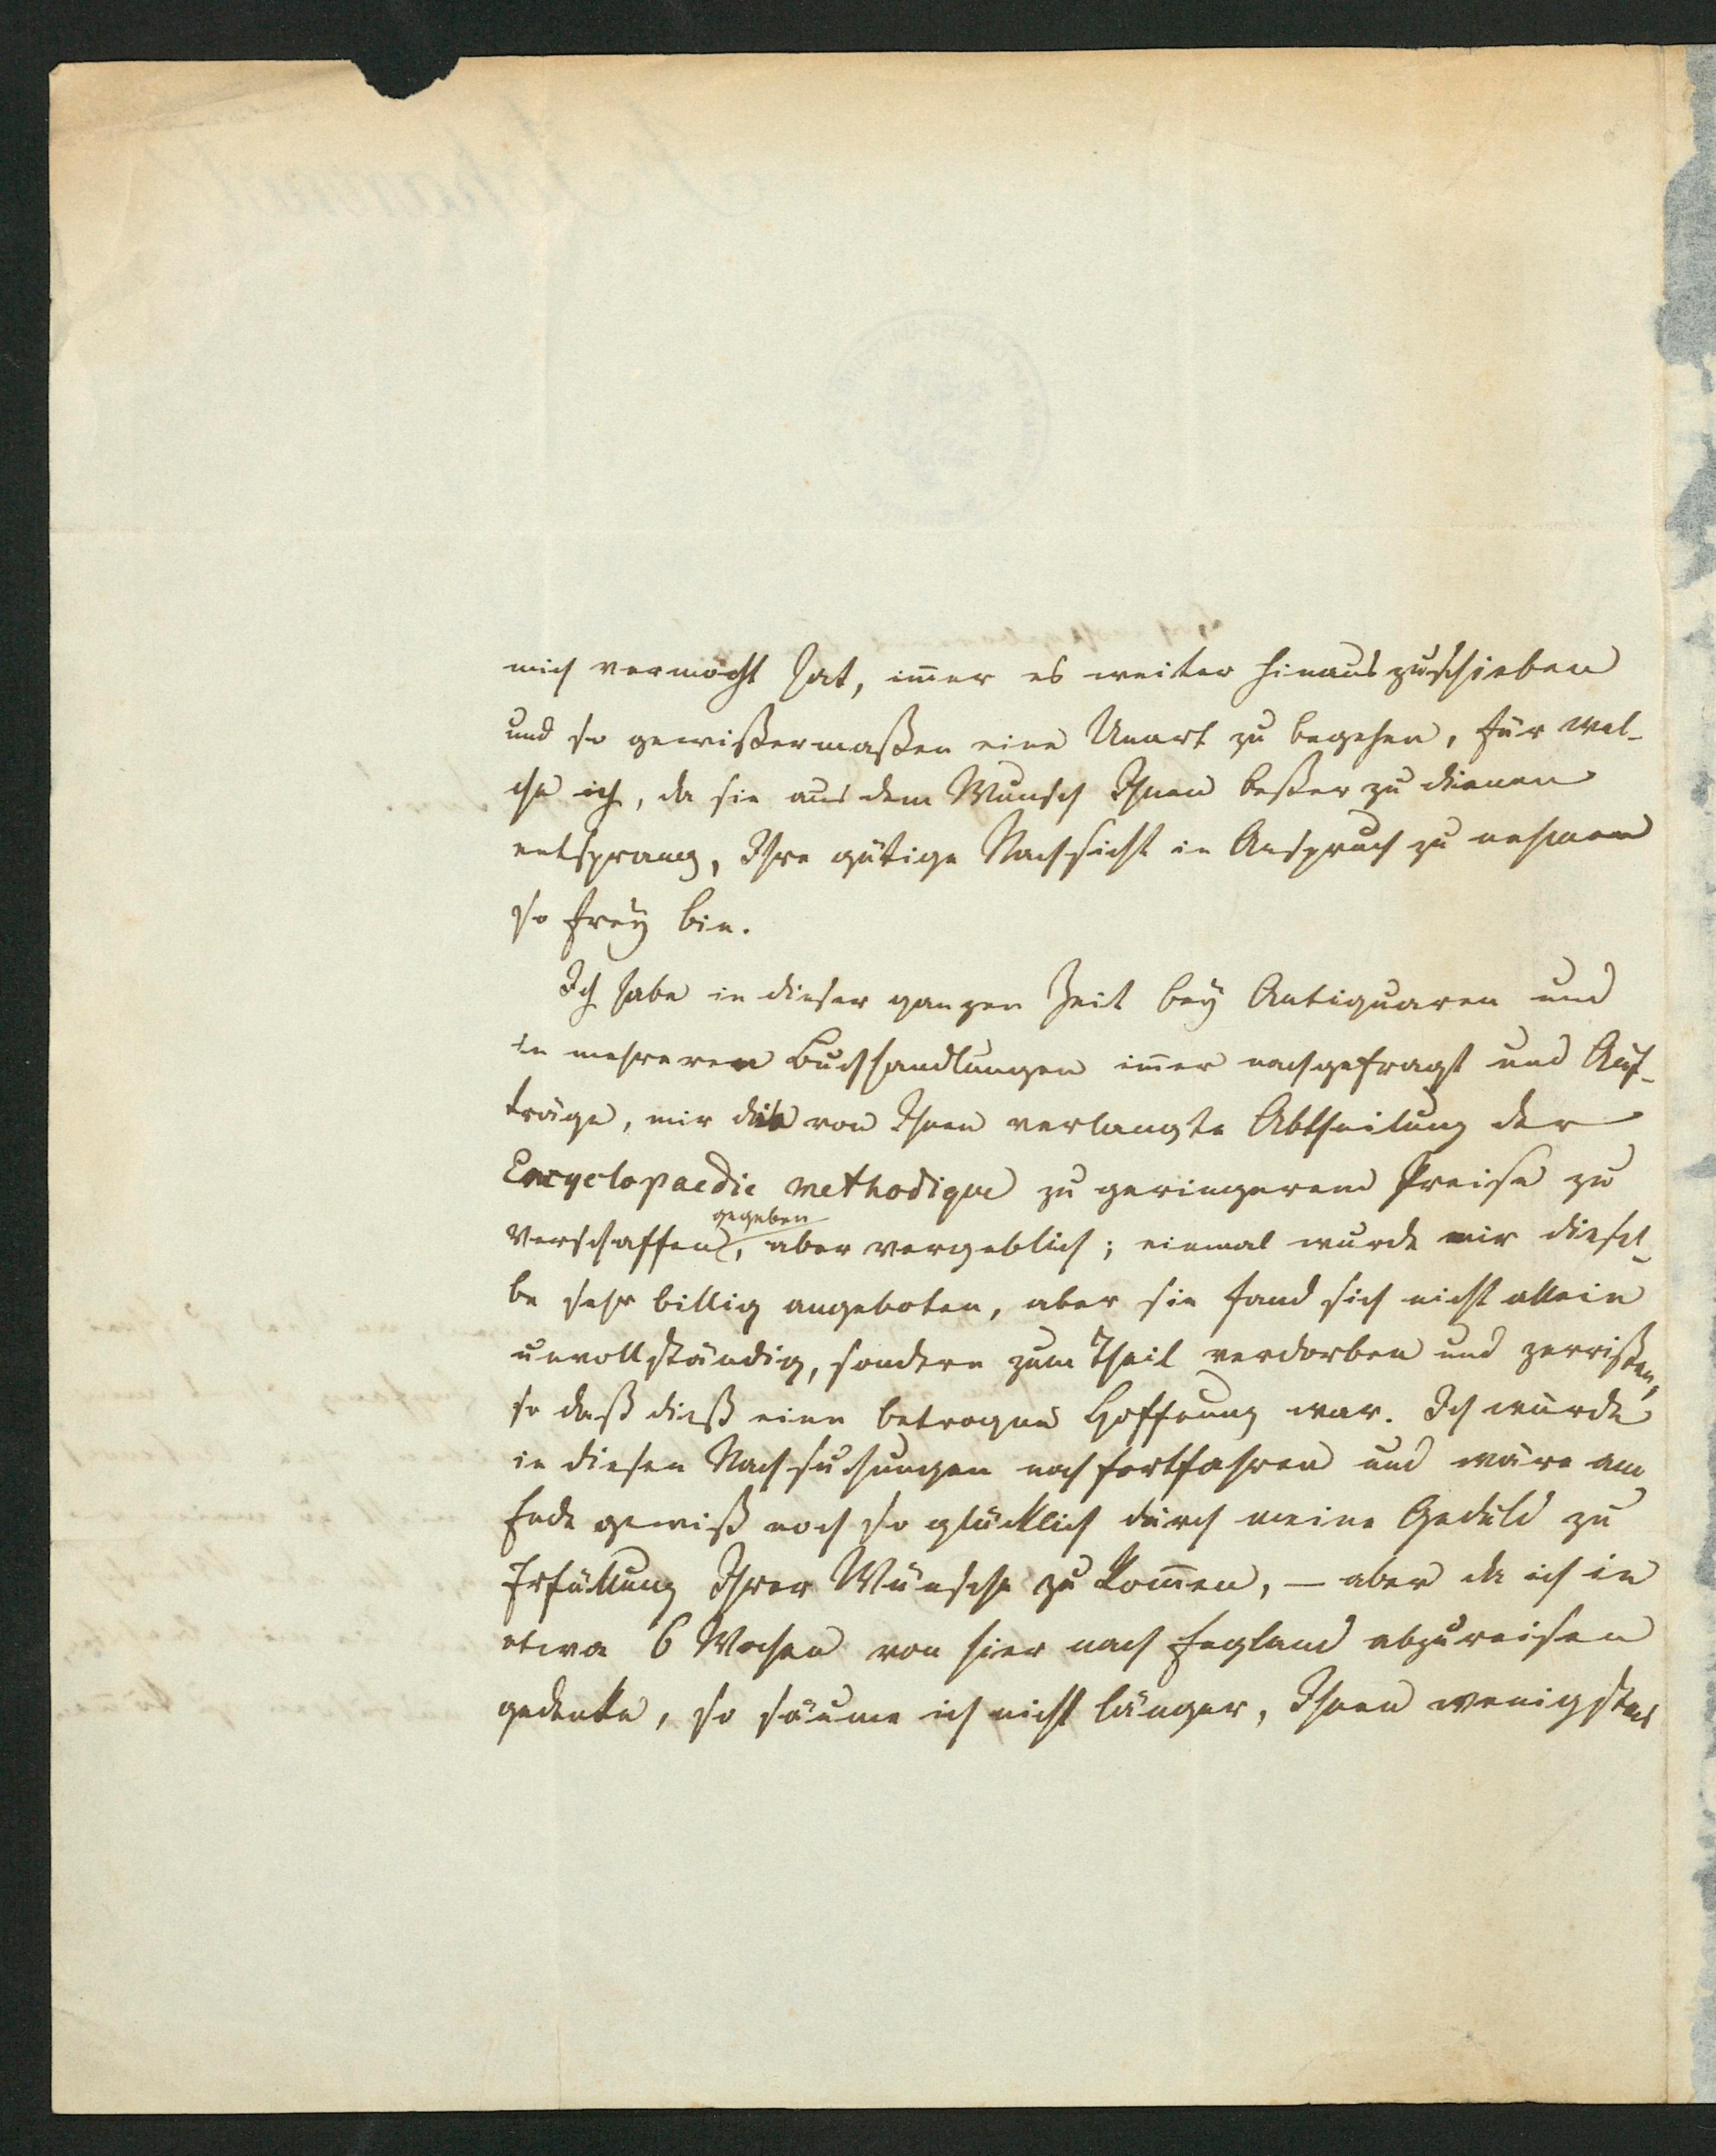 mich vermocht hat, im̅er es weiter hinaus zuschieben
und so gewißermaßen eine Unart zu begehen, für wel-
che ich, da sie aus dem Wunsch Ihnen beßer zu dienen
entsprang, Ihre gütige Nachsicht in Anspruch zu nehmen
so frey bin.
Ich habe in dieser ganzen Zeit bey Antiquaren und
in mehreren Buchhandlungen im̅er nachgefragt und Auf-
träge, mir die von Ihnen verlangte Abtheilung der
Encyclopaedie methodique zu geringerem Preise zu
gegeben
verschaffen, aber vergeblich; einmal wurde mir diesel-
be sehr billig angeboten, aber sie fand sich nicht allein
unvollständig, sondern zum Theil verdorben und zerrißen,
so daß dieß eine betrogne Hoffnung war. Ich würde
in diesen Nachsuchungen noch fortfahren und wäre am
Ende gewiß noch so glücklich durch meine Geduld zu
Erfüllung Ihrer Wünsche zu kom̅en, — aber da ich in
etwa 6 Wochen von hier nach England abzureisen
gedenke, so säume ich nicht länger, Ihnen wenigstens